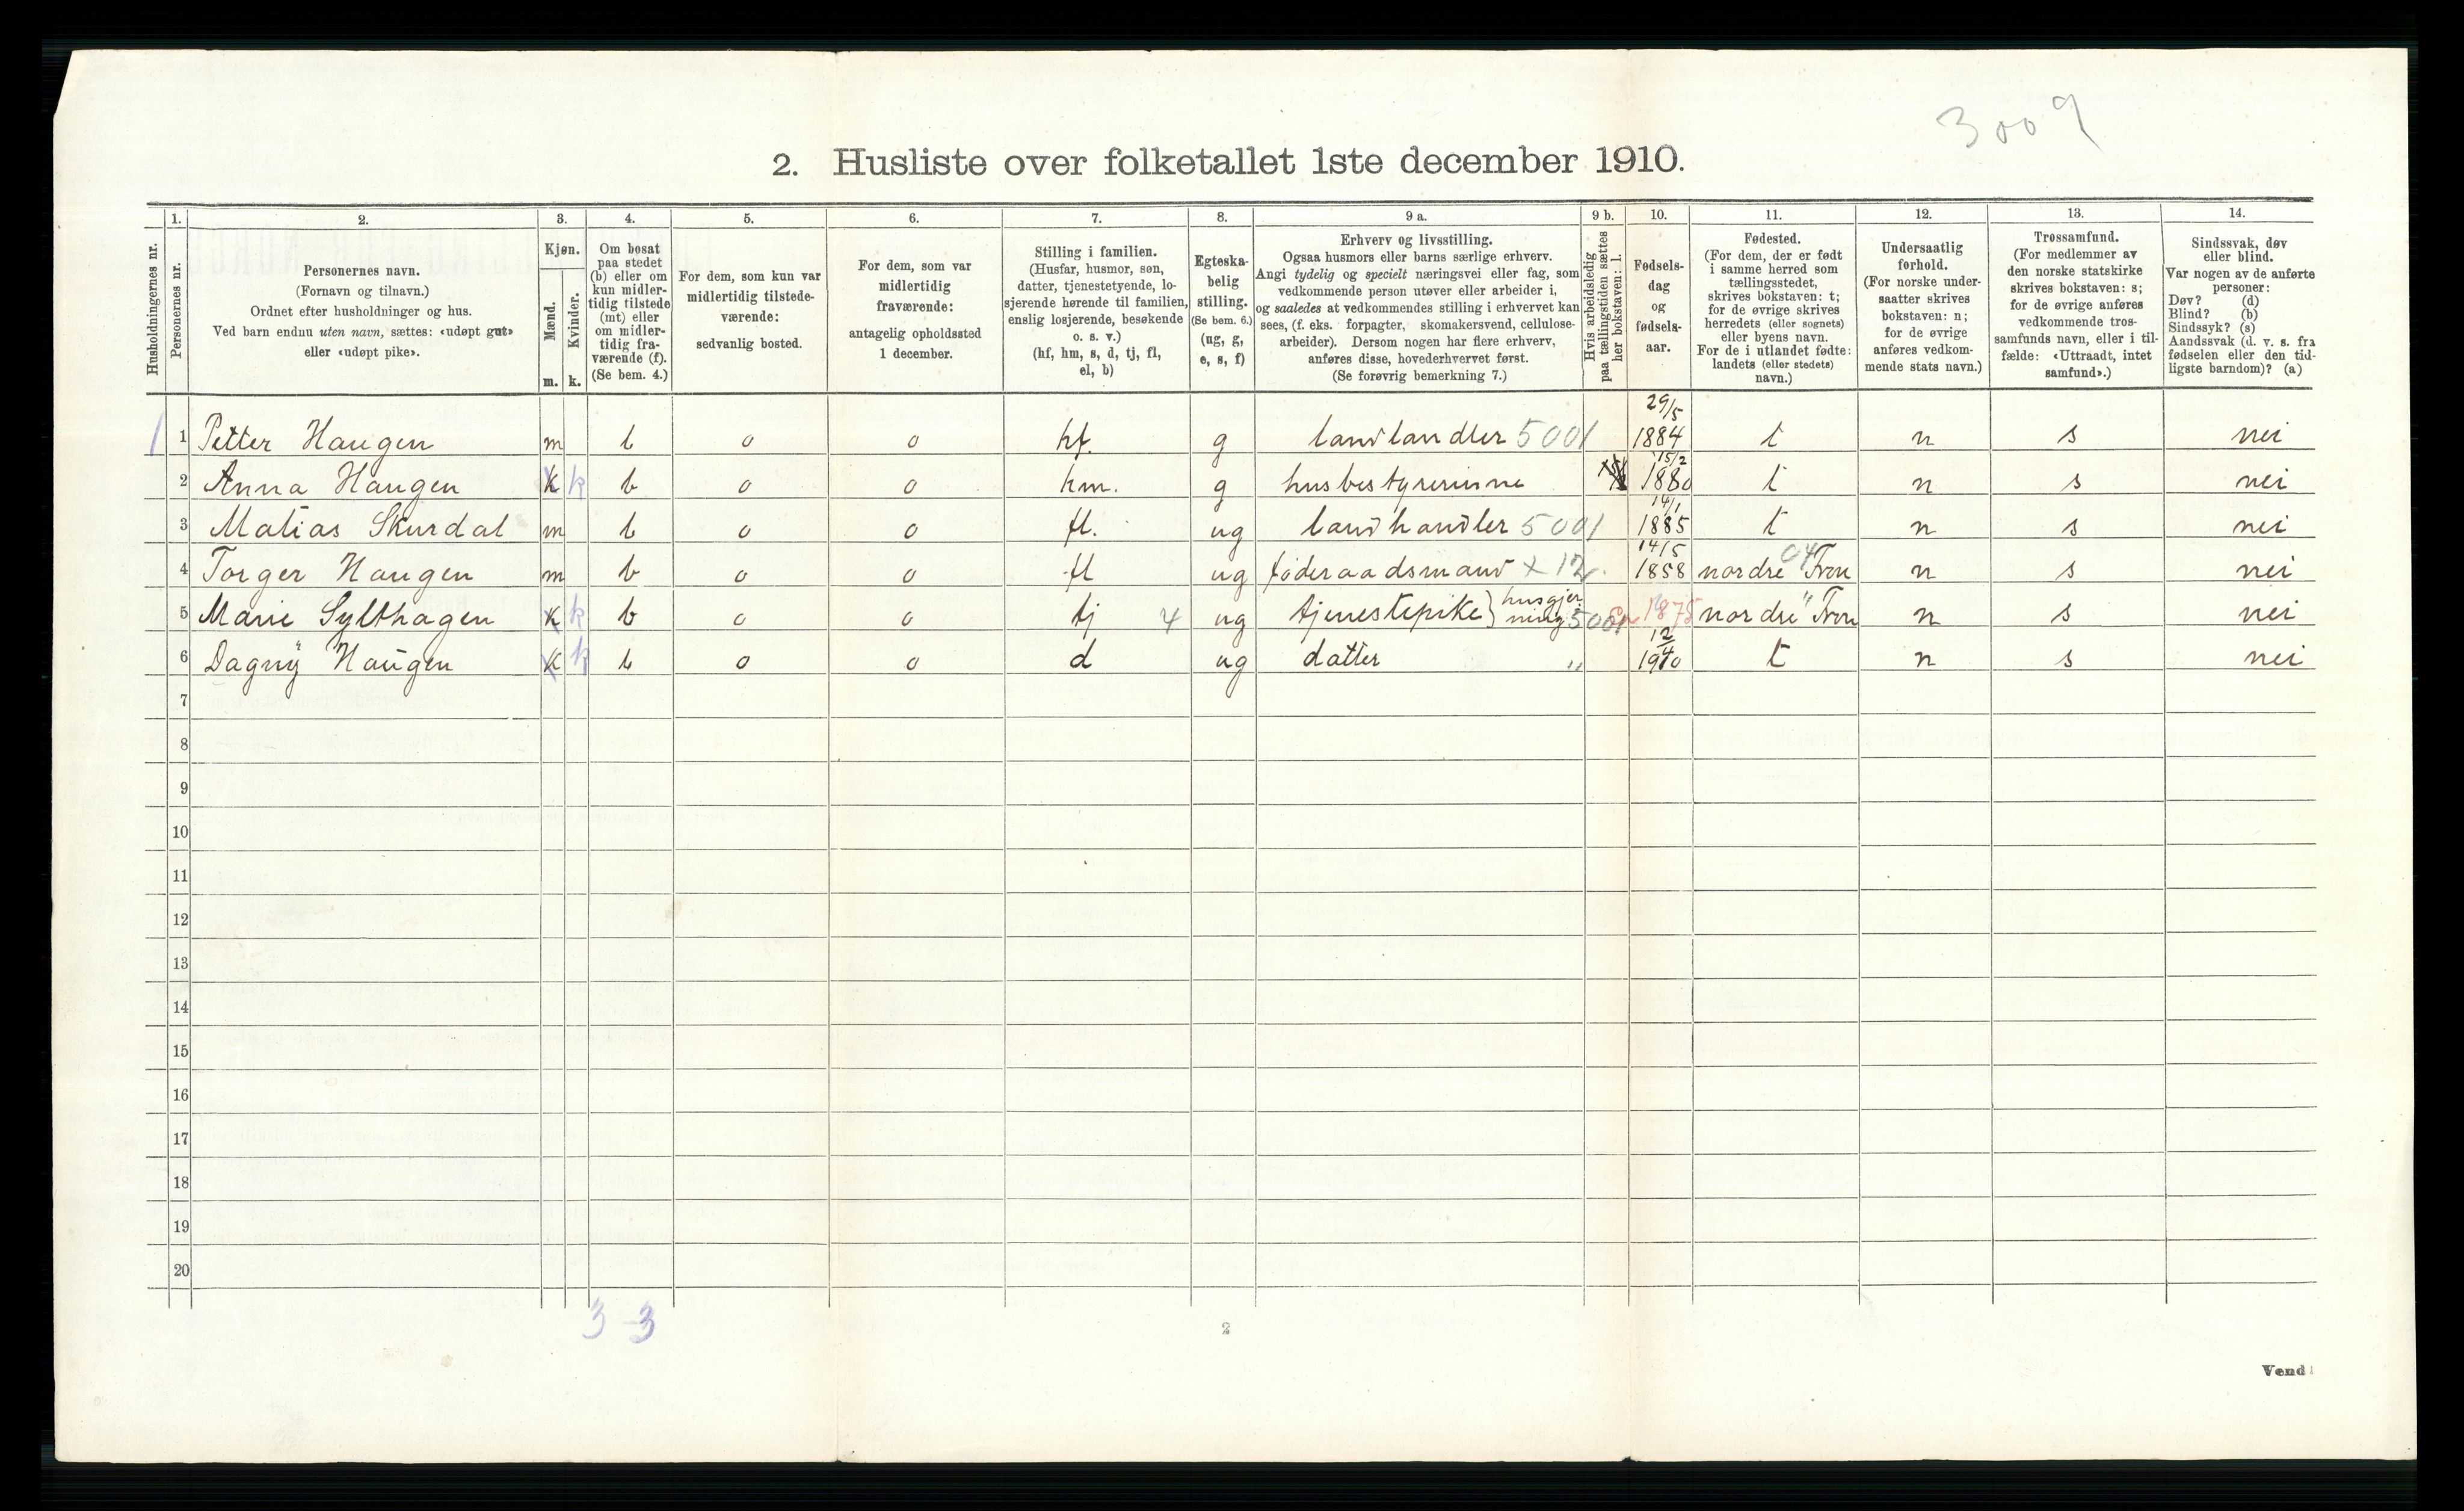 3009
2. Husliste over folketallet 1ste december 1910.
Husholdningernes nr.
1. Personernes nr.
2. Personernes navn.
(Fornavn og tilnavn.)
Ordnet efter husholdninger og hus.
Ved barn endnu uten navn, sættes: «udøpt gut»
eller «udøpt pike».
3. Kjøn.
Mænd. m.
Kvinder. k.
4. Om bosat
paa stedet
(b) eller om
kun midler-
tidig tilstede
(mt) eller
om midler-
tidig fra-
værende (f).
(Se bem. 4.)
5. For dem, som kun var
midlertidig tilstede-
værende:
sedvanlig bosted.
6. For dem, som var
midlertidig
fraværende:
antagelig opholdssted
1 december.
7. Stilling i familien.
(Husfar, husmor, søn,
datter, tjenestetyende, lo-
sjerende hørende til familien,
enslig losjerende, besøkende
o. s. v.)
(hf, hm, s, d, tj, fl,
el, b)
8. Egteska-
belig
stilling.
(Se bem. 6.)
(ug, g,
e, s, f)
9 a. Erhverv og livsstilling.
Ogsaa husmors eller barns særlige erhverv.
Angi tydelig og specielt næringsvei eller fag, som
vedkommende person utøver eller arbeider i,
og saaledes at vedkommendes stilling i erhvervet kan
sees, (f. eks. forpagter, skomakersvend, cellulose-
arbeider). Dersom nogen har flere erhverv,
anføres disse, hovederhvervet først.
(Se forøvrig bemerkning 7.)
9 b. Hvis arbeidsledig
paa tællingstiden sættes
her bokstaven: l.
10. Fødsels-
dag
og
fødsels-
aar.
11. Fødested.
(For dem, der er født
i samme herred som
tællingsstedet,
skrives bokstaven: t;
for de øvrige skrives
herredets (eller sognets)
eller byens navn.
For de i utlandet fødte:
landets (eller stedets)
navn.)
12. Undersaatlig
forhold.
(For norske under-
saatter skrives
bokstaven: n;
for de øvrige
anføres vedkom-
mende stats navn.)
13. Trossamfund.
(For medlemmer av
den norske statskirke
skrives bokstaven: s;
for de øvrige anføres
vedkommende tros-
samfunds navn, eller i til-
fælde: «Uttraadt, intet
samfund».)
14. Sindssvak, døv
eller blind.
Var nogen av de anførte
personer:
Døv? (d)
Blind? (b)
Sindssyk? (s)
Aandssvak (d. v. s. fra
fødselen eller den tid-
ligste barndom)? (a)
1 1 Petter Haugen m b o o hf. g landlandler 5001 29/5 1884 t n s nei
2 Anna Haugen k k b o o hm. g husbestyrerinne 15/2 1880 t n s nei
3 Matias Skurdal m b o o fl. ug landhandler 5001 14/1 1885 t n s nei
4 Torger Haugen m b o o fl ug føderaadsmand x 12. 14/5 1858 nordre 04 Fron n s nei
5 Marie Sylthagen k k b o o tj 4 ug tjenestepike } husgjerning 1875 nordre " Fron n s nei
6 Dagny Haugen k k b o o d ug datter " 12/4 1910 t n s nei
7
8
9
10
11
12
13
14
15
16
17
18
19
20
3 - 3
2
Vend